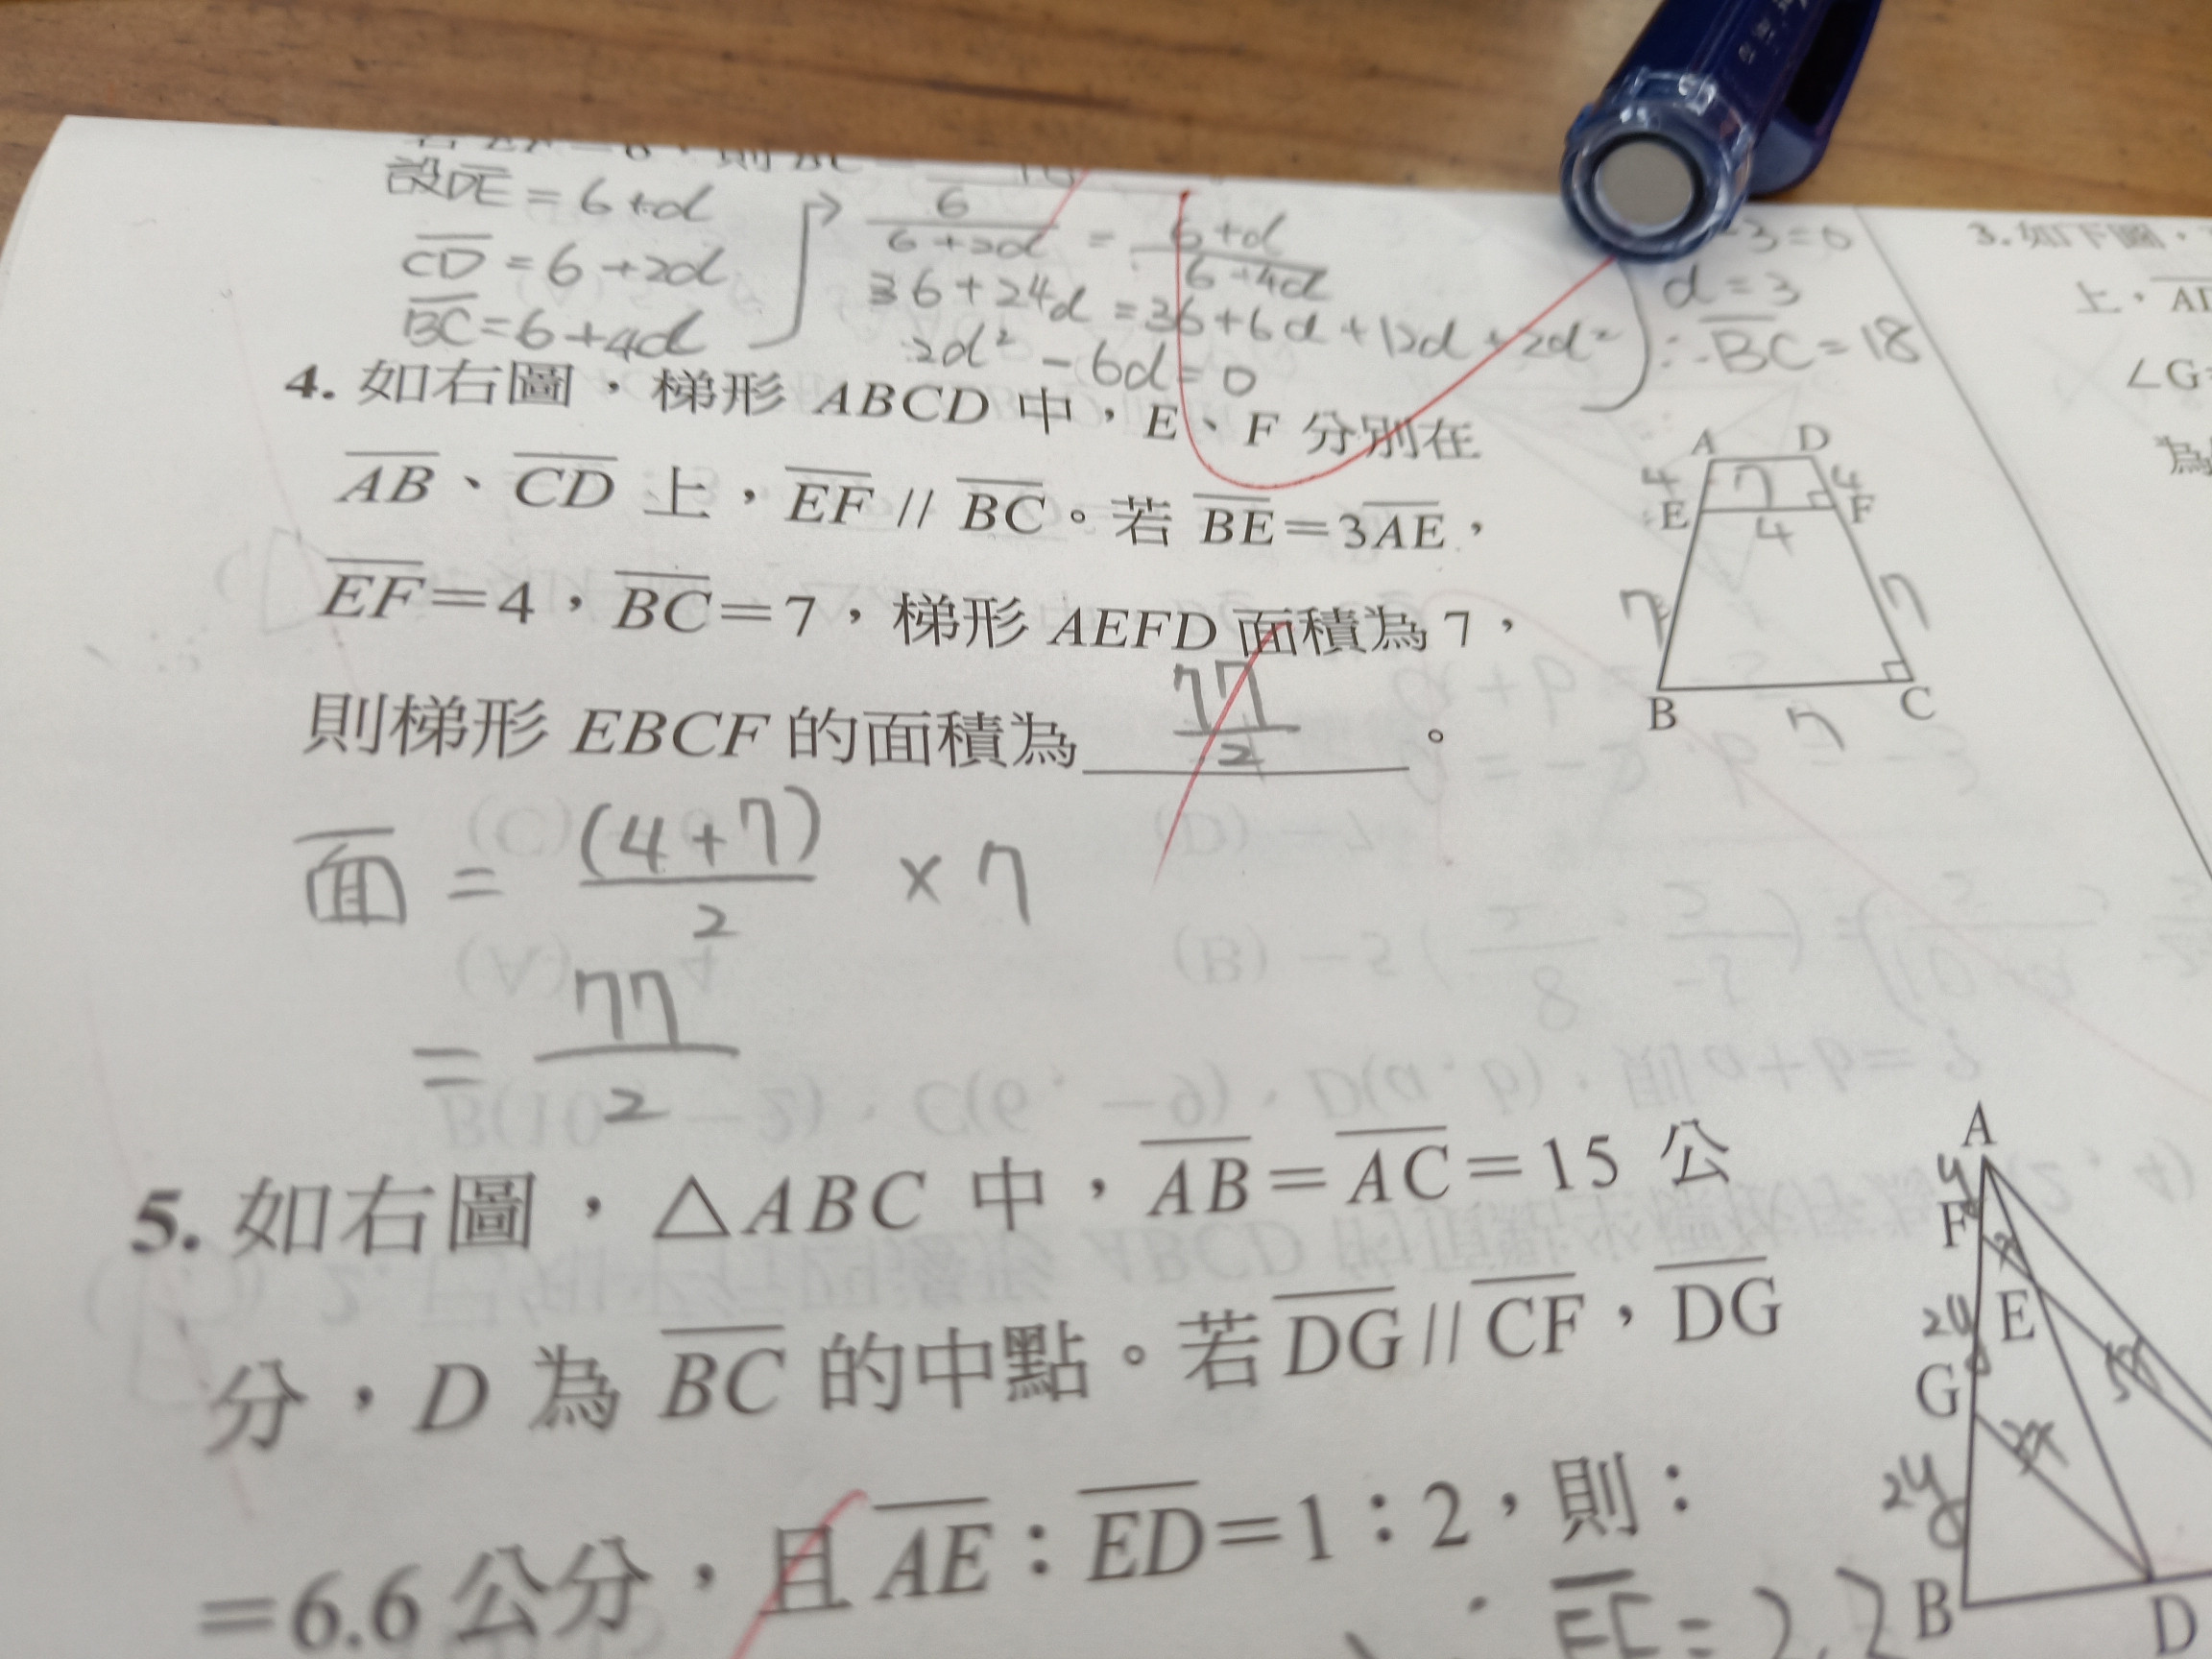 設DE = 6+d
CD = 6+2d
BC = 6+4d
6/(6+2d) = (6+d)/(6+4d)
36+24d = 36+6d+12d+2d²
2d² - 6d = 0
d = 3
∴ BC = 18
3. 如下圖，
上，
∠G
4. 如右圖，梯形 ABCD 中，E、F 分別在
AB、CD 上，EF // BC。若 BE=3AE，
EF=4，BC=7，梯形 AEFD 面積為 7，
則梯形 EBCF 的面積為 77/2 。
A D
4 7 4
E F
4
7 7
B C
7
面 = (4+7)/2 × 7
= 77/2
5. 如右圖，△ABC 中，AB=AC=15 公
分，D 為 BC 的中點。若 DG // CF，DG
=6.6 公分，且 AE：ED=1：2，則：
A
y
F
2y E
G
2x
2y
B D